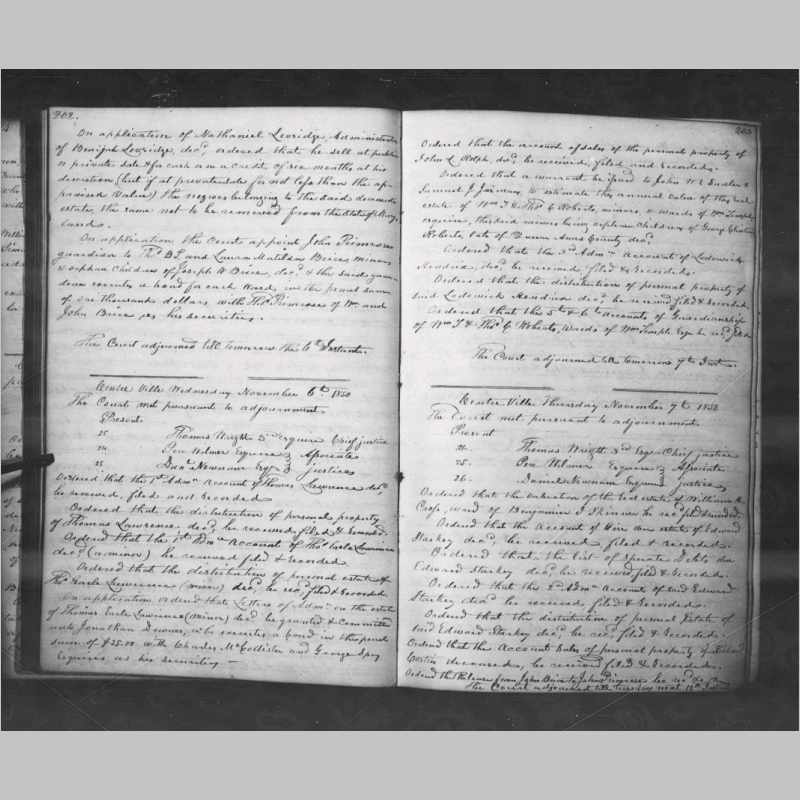 202.
On application of Nathaniel Leveridge, Administrator
of Benijah Leveridge, decd, ordered that he sell at public
or private sale & for cash or on a credit of six months at his
discretion (but if at private sale for not less than the ap-
praised value) the negroes belonging to the said deceaseds
estate, the same not to be removed from the State of Mary
land.
On application the Court appoint John Primrose
guardian to Thos B. and Laura Matilda Brices minors
& orphan children of Joseph W Brice, decd, & the said guar-
dian executes a bond for each Ward, in the penal sum
of one thousand dollars with Thos Primrose of Wm and
John Brice as his securities.
The Court adjourned till tomorrow the 6th Instant.
Centre Ville Wednesday November 6th 1850
The Court met pursuant to adjournment.
Present.
25 Thomas Wright 3d Esquire Chief justice
24. Pere Wilmer Esquire & Associate
25 Danl Newnam Esqr justices
Ordered that the 1st Admn account of Thomas Lawrence decd,
be received, filed and recorded
Ordered that the distribution of personal property
of Thomas Lawrence, decd, be received filed & recorded.
Ordered that the 1st Admn Account of Thos Earle Lawrence
decd (a minor) be received filed & recorded
Ordered that the distribution of personal estate of
Thos Earle Lawrence (minor) decd, be recd, filed & recorded
On application ordered that Letters of Admn on the estate
of Thomas Earle Lawrence (minor) decd, be granted & committed
unto Jonathan Downes, who executes a bond in the penal
sum of $2500 with Charles McCollister and George Spry
Esquires as his securities —
203
Ordered that the account of sales of the personal property of
John L Rolph, decd, be received, filed and recorded.
Ordered that a warrant be issued to John W E Sudler &
Samuel J. to estimate the annual value of the real
estate of Wm T. & Thos C Roberts, minors, & Wards of Wm Temple,
esquire, the said minors being orphan children of George
Roberts, late of Queen Anns County decd,
Ordered that the 3rd Admn Account of Lodowick
decd, be received filed & Recorded.
Ordered that the distribution of personal property of
said Lodowick decd be received filed & recorded
Ordered that the 5th & 6th accounts of Guardianship
of Wm T & Thos C Roberts, Wards of Wm Temple Esqr be recd filed
The Court adjourned till tomorrow 7th Inst.
Centre Ville, Thursday November 7th 1850
The Court met pursuant to adjournment.
Present
26. Thomas Wright 3d Esqr Chief justice
25. Pere Wilmer Esquire & Associate
26. Daniel Newnam Esquire justices
Ordered that the valuation of the real estate of William
ward of Benjamin be recd filed & recorded
Ordered that the Account of on estate of Edward
Starkey decd, be received filed & recorded.
Ordered that the list of Sperate debts due
Edward Starkey decd, be received filed & Recorded.
Ordered that the Admn Account of said Edward
Starkey decd be received, filed & Recorded.
Ordered that the distribution of personal Estate of
said Edward Starkey decd, be recd, filed & Recorded.
Ordered that the Account Sales of personal property of
deceased, be received filed & Recorded.
Ordered the Release from John Brice to John Primrose be recd &c
The Court adjourned till Tuesday next 12th